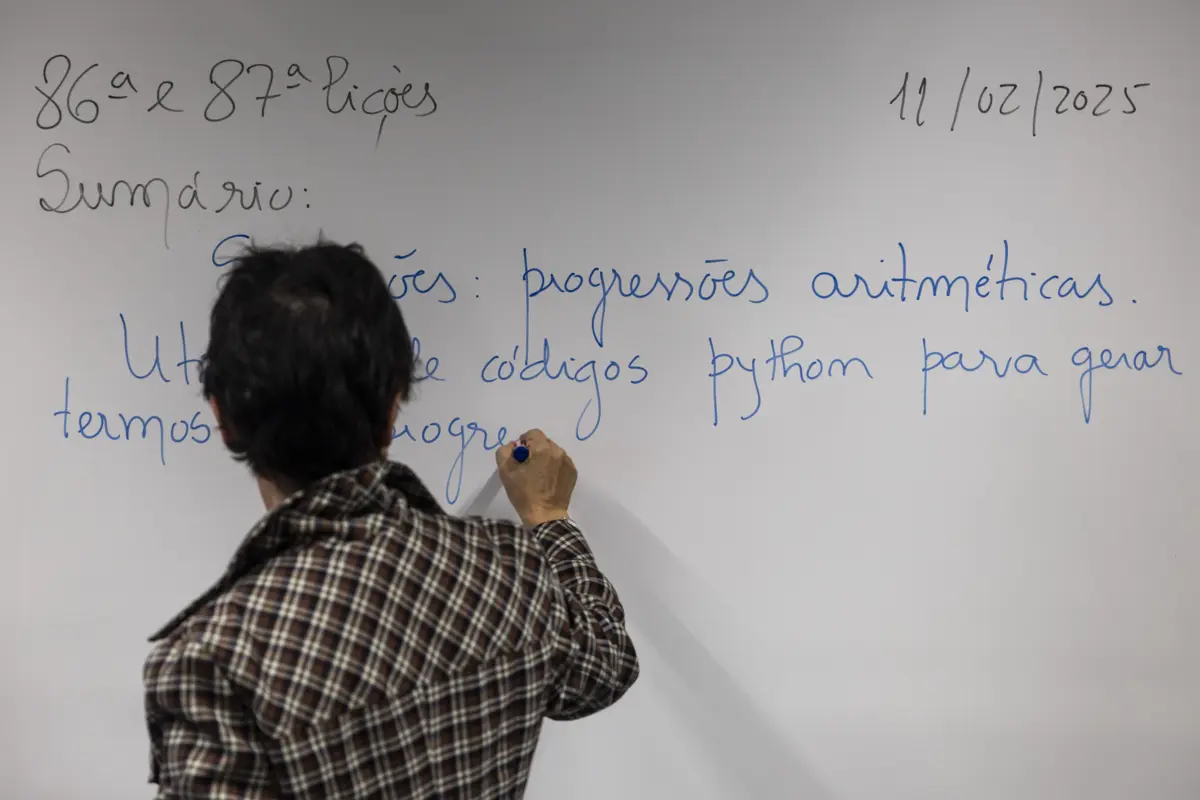 86ª e 87ª lições 11/02/2025
Sumário:
progressões aritméticas.
códigos python para gerar
termos